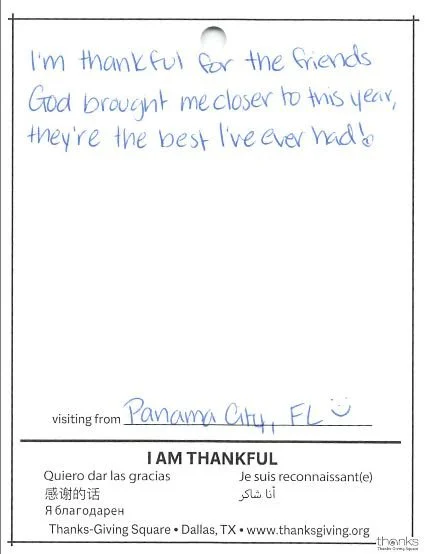 I'm thankful for the friends
God brought me closer to this year,
they're the best I've ever had!
visiting from Panama City, FL
I AM THANKFUL
Quiero dar las gracias
Je suis reconnaissant(e)
感谢的话
أنا شاكر
Я благодарен
Thanks-Giving Square • Dallas, TX • www.thanksgiving.org
thanks
Thanks-Giving Square